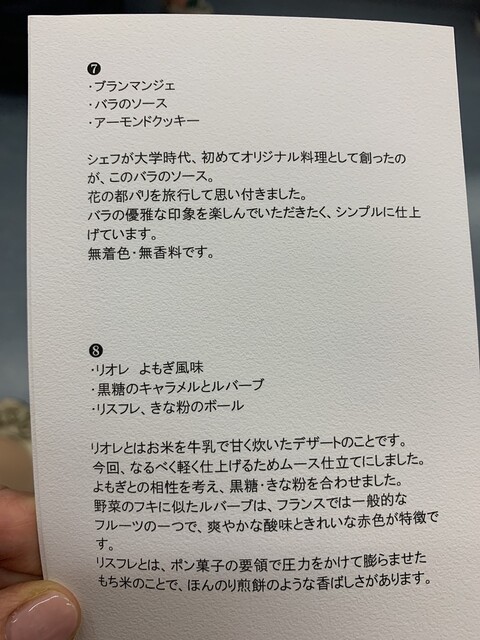 ❼
・ブランマンジェ
・バラのソース
・アーモンドクッキー
シェフが大学時代、初めてオリジナル料理として創ったの
が、このバラのソース。
花の都パリを旅行して思い付きました。
バラの優雅な印象を楽しんでいただきたく、シンプルに仕上
げています。
無着色・無香料です。
❽
・リオレ　よもぎ風味
・黒糖のキャラメルとルバーブ
・リスフレ、きな粉のボール
リオレとはお米を牛乳で甘く炊いたデザートのことです。
今回、なるべく軽く仕上げるためムース仕立てにしました。
よもぎとの相性を考え、黒糖・きな粉を合わせました。
野菜のフキに似たルバーブは、フランスでは一般的な
フルーツの一つで、爽やかな酸味ときれいな赤色が特徴で
す。
リスフレとは、ポン菓子の要領で圧力をかけて膨らませた
もち米のことで、ほんのり煎餅のような香ばしさがあります。